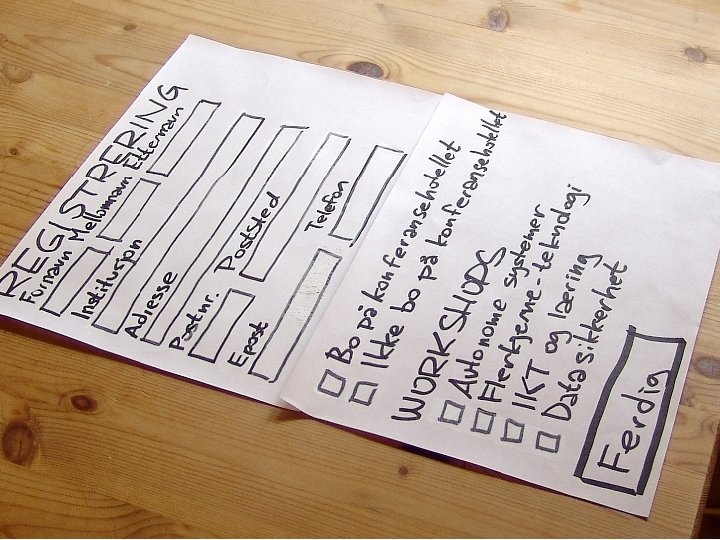 REGISTRERING
Fornavn Mellomnavn Etternavn
Institusjon
Adresse
Postnr. PostSted
Epost Telefon
Bo på konferansehotellet
Ikke bo på konferansehotellet
WORKSHOPS
Autonome systemer
Flerkjerne-teknologi
IKT og læring
Datasikkerhet
Ferdig